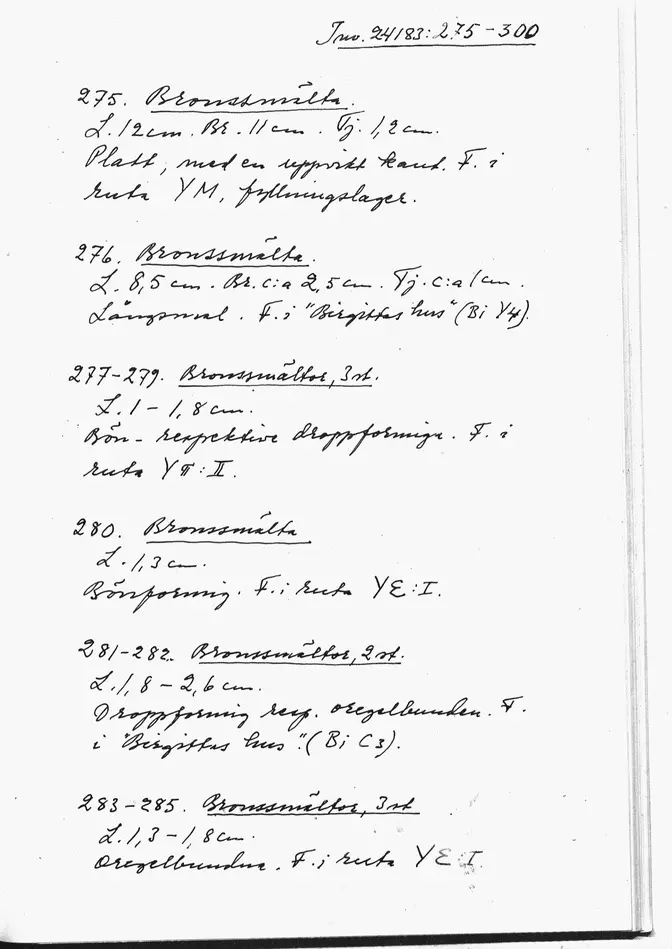 Inv. 24183:275-300
275. Bronssmälta.
L. 12 cm. Br. 11 cm. Tj. 1,2 cm.
Platt, med en uppvikt kant. F. i
ruta YM, fyllningslager.
276. Bronssmälta.
L. 8,5 cm. Br. c:a 2,5 cm. Tj. c:a 1 cm.
Långsmal. F. i "Birgittas hus" (Bi Y4).
277-279. Bronssmältor, 3 st.
L. 1 - 1,8 cm.
Bön- respektive droppformiga. F. i
ruta YT:II.
280. Bronssmälta
L. 1,3 cm.
Bönformig. F. i ruta YE:I.
281-282. Bronssmältor, 2 st.
L. 1,8 - 2,6 cm.
Droppformig resp. oregelbunden. F.
i "Birgittas hus". (Bi C3).
283-285. Bronssmältor, 3 st
L. 1,3 - 1,8 cm.
Oregelbundna. F. i ruta YE:I.